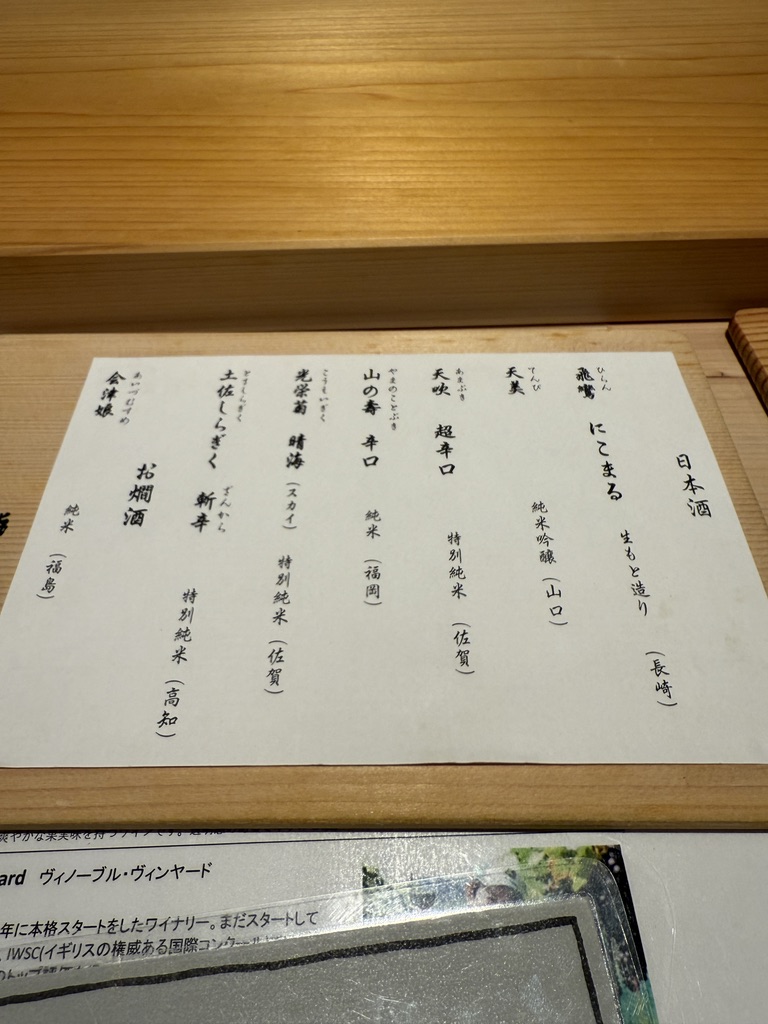 日本酒
ひらん
飛鸞 にこまる 生もと造り (長崎)
てんび
天美 純米吟醸 (山口)
あまぶき
天吹 超辛口 特別純米 (佐賀)
やまのことぶき
山の壽 辛口 純米 (福岡)
こうえいぎく
光栄菊 晴海 (スカイ) 特別純米 (佐賀)
とさしらぎく ざんから
土佐しらぎく 斬辛 特別純米 (高知)
お燗酒
あいづむすめ
会津娘 純米 (福島)
ard ヴィノーブル・ヴィンヤード
年に本格スタートをしたワイナリー。まだスタートして
IWSC(イギリスの権威ある国際コンクール